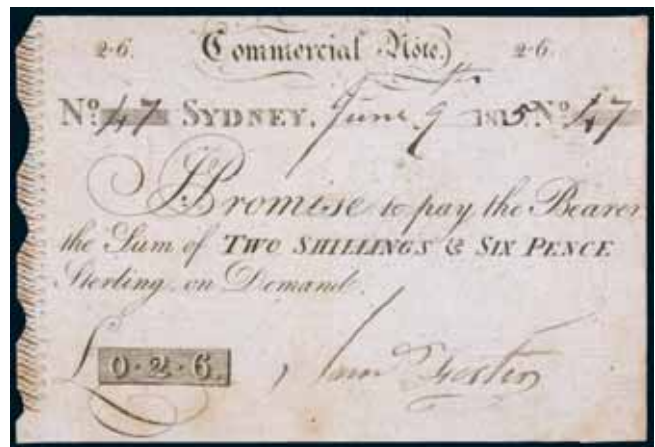 2·6. Commercial Note. 2·6.
No. 47 SYDNEY, June 9th 1815 No. 47
I Promise to pay the Bearer
the Sum of TWO SHILLINGS & SIX PENCE
Sterling on Demand.
£ 0·2·6.